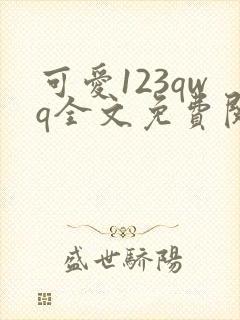 可愛123qw
q全文免費閱
盛世驕陽